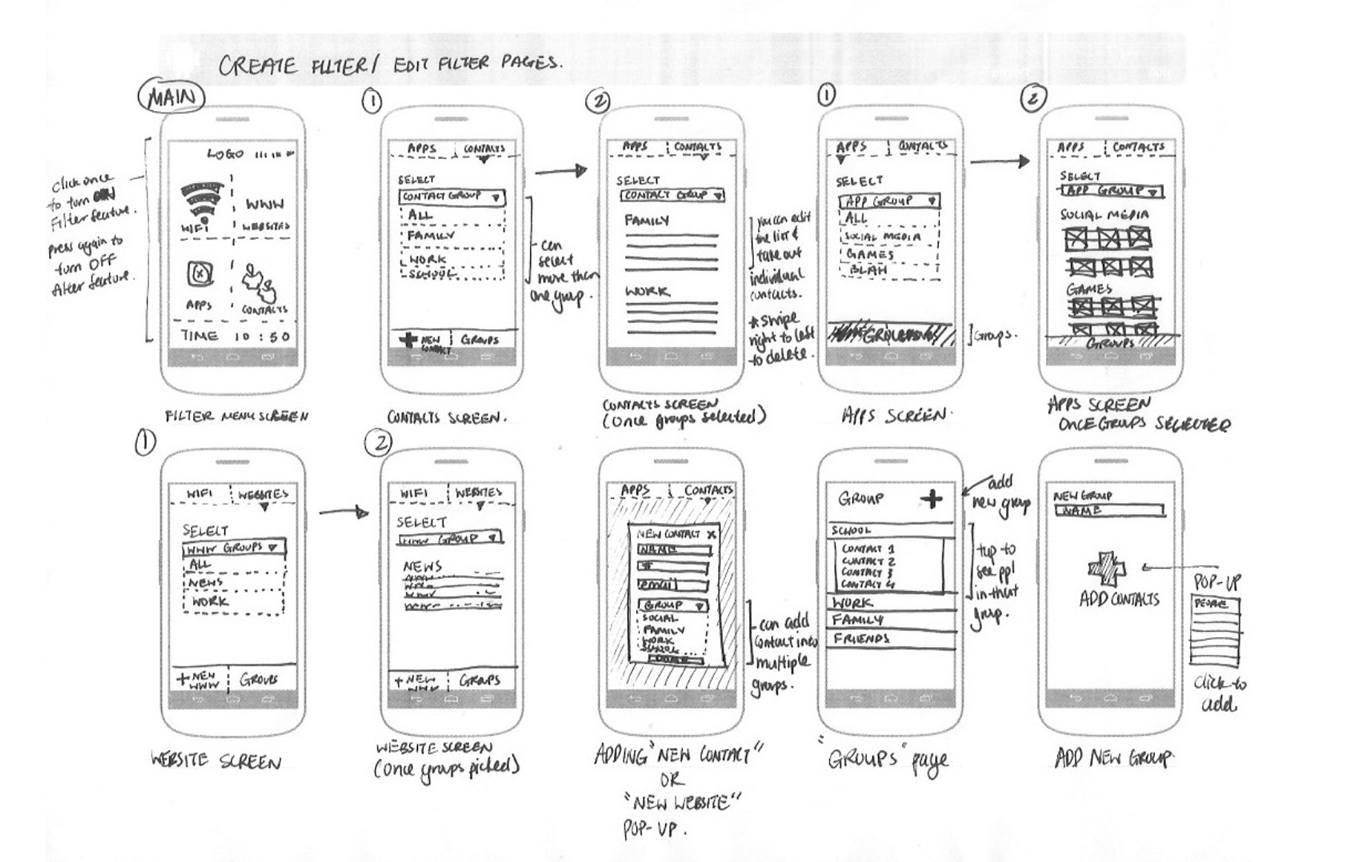 CREATE FILTER / EDIT FILTER PAGES.
MAIN
Click once
to turn ON
Filter feature.
press again to
turn OFF
LOGO
WIFI
WWW
WEBSITES
APPS
CONTACTS
TIME 10:50
FILTER MENU SCREEN
1
APPS CONTACTS
SELECT
CONTACT GROUP
ALL
FAMILY
WORK
SCHOOL
+ NEW
CONTACT
GROUPS
can
select
more than
one group.
CONTACTS SCREEN.
2
APPS CONTACTS
SELECT
CONTACT GROUP
FAMILY
WORK
you can edit
the list &
take out
individual
contacts.
* Swipe
right to left
to delete.
CONTACTS SCREEN
(once groups selected)
1
APPS CONTACTS
SELECT
APP GROUP
ALL
SOCIAL MEDIA
GAMES
BLAH
Groups.
APPS SCREEN.
2
APPS CONTACTS
SELECT
APP GROUP
SOCIAL MEDIA
GAMES
GROUPS
APPS SCREEN
ONCE GROUPS SELECTED
1
WIFI WEBSITES
SELECT
WWW GROUPS
ALL
NEWS
WORK
+ NEW
WWW
GROUPS
WEBSITE SCREEN
2
WIFI WEBSITES
SELECT
WWW GROUP
NEWS
+ NEW
WWW
GROUPS
WEBSITE SCREEN
(once groups picked)
APPS CONTACTS
NEW CONTACT X
NAME
#
email
GROUP
SOCIAL
FAMILY
WORK
SCHOOL
can add
contact into
multiple
groups.
ADDING "NEW CONTACT"
OR
"NEW WEBSITE"
POP-UP.
GROUP +
add
new group
SCHOOL
CONTACT 1
CONTACT 2
CONTACT 3
CONTACT 4
WORK
FAMILY
FRIENDS
tap to
see ppl
in that
group.
"GROUPS" page
NEW GROUP
NAME
ADD CONTACTS
POP-UP
PEOPLE
click to
add
ADD NEW GROUP.